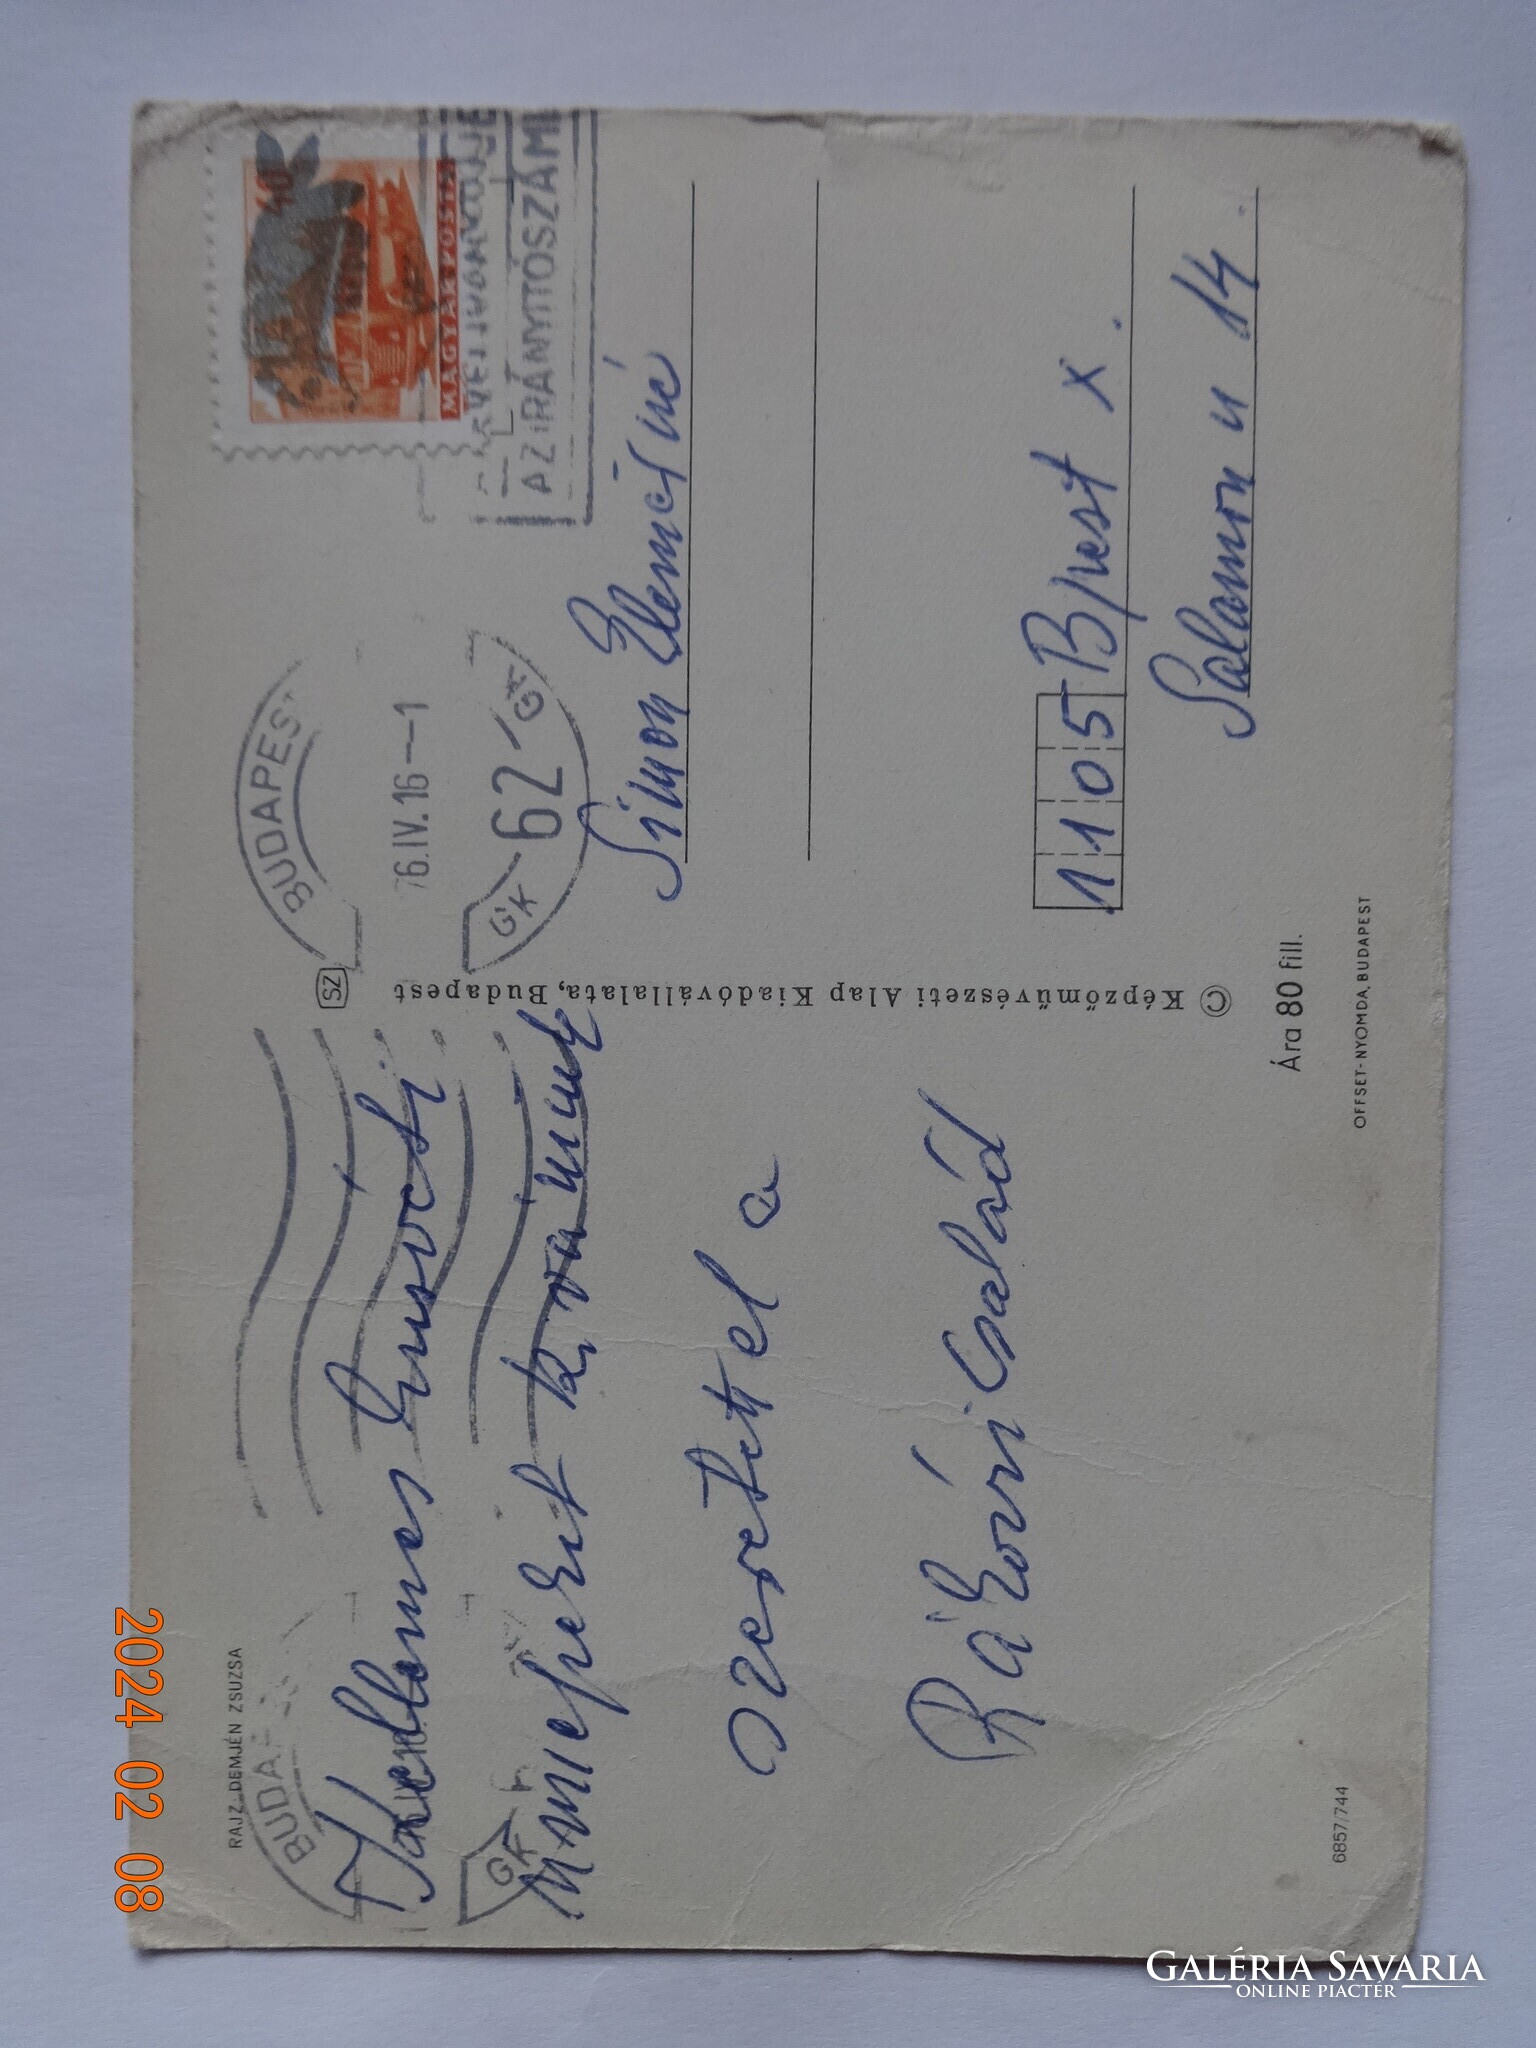 RAJZ: DEMJÉN ZSUZSA
Kellemes húsvéti
ünnepeket kívánunk
szeretettel a
Rákóczi Család
6857/744
SZ
© Képzőművészeti Alap Kiadóvállalata, Budapest
Ára 80 fill.
OFFSET-NYOMDA, BUDAPEST
BUDAPEST
76.IV.16-1
62
GK
MAGYAR POSTA
AZ IRÁNYÍTÓSZÁM
Simon Elemérné
1105 Bpest X.
Salamon u 14.
BUDA
GK
2024 02 08
GALÉRIA SAVARIA
ONLINE PIACTÉR